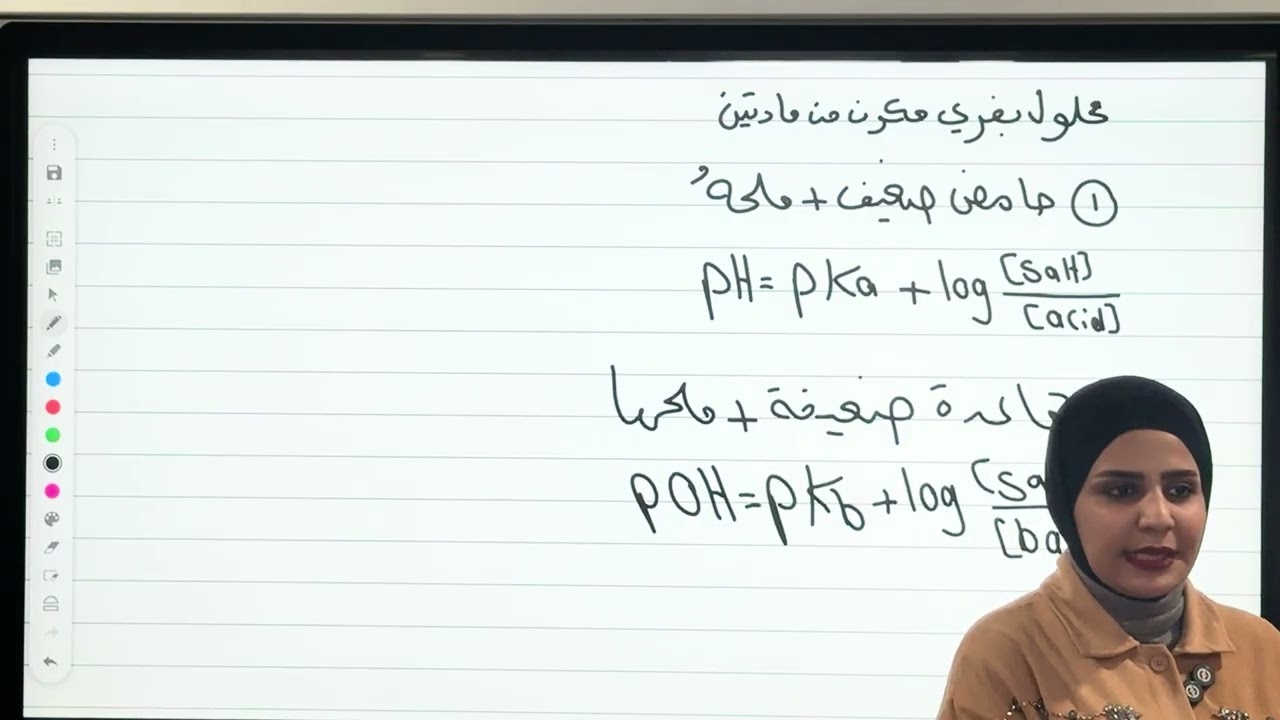 محلول بفري مكون من مادتين
① حامض ضعيف + ملحهُ
pH = pKa + log [salt] / [acid]
قاعدة ضعيفة + ملحها
pOH = pKb + log [sa / [ba